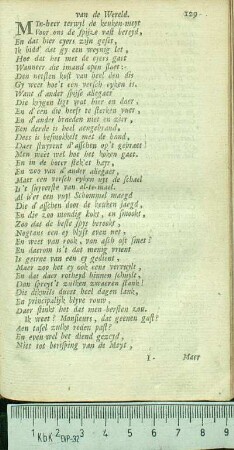 van de Wereld. 129
MDe-heer terwyl de keuken-meyt
Voor ons de spijze vast bereyd,
En dat hier eyers zijn geset,
Ik bidd' dat gy een weynig let,
Hoe dat het met de eyers gaet
Wanneer die imand open slaet:
Den netsten kost van heel den dis
Gy weet hoe't een versch eyken is.
Want d'ander spijze alegaer
Die krygen ligt wat hier en daer,
En d'een die heeft te sterken vuer,
En d'ander braeden met en zier,
Een derde is heel aengebrand,
Deze is besnokkelt met de hand,
Daer stuyvent d'asschen op't gebraet!
Men weet wel hoe het koken gaet.
En in de boter stek'et hayr,
En zoo van d'ander alegaer,
Maer een versch eyken uit de schael
Is 't suyverste van al-te-mael.
Al is'er een vuyl Schommel maegd
Die d'asschen door de keuken jaegd,
En die zoo mondig kokt, en smookt,
Zoo dat de beste spijs berookt,
Nogtans een ey blyft even net,
En weet van rook, van asch oft smet!
En daerom is't dat menig vrient
Is geerne van een ey gedient,
Maer zoo het ey ook eens verreyst,
En dat daer rotheyd binnen schuylt,
Dan spreyt'z zulken zwaeren stank!
Die dikmils duert heel dagen lank,
En principalijk blyve rouw,
Daer stinkt het dat men bersten zou.
Ik weet? Monsieurs, dat geenen gast?
Aen tafel zulks roden past?
En even wel het diend gezeyd,
Niet tot berisping van de Meyt,
I - Maer
0 1 2 3 4 5 6 7 8 9
KbK EXP-32